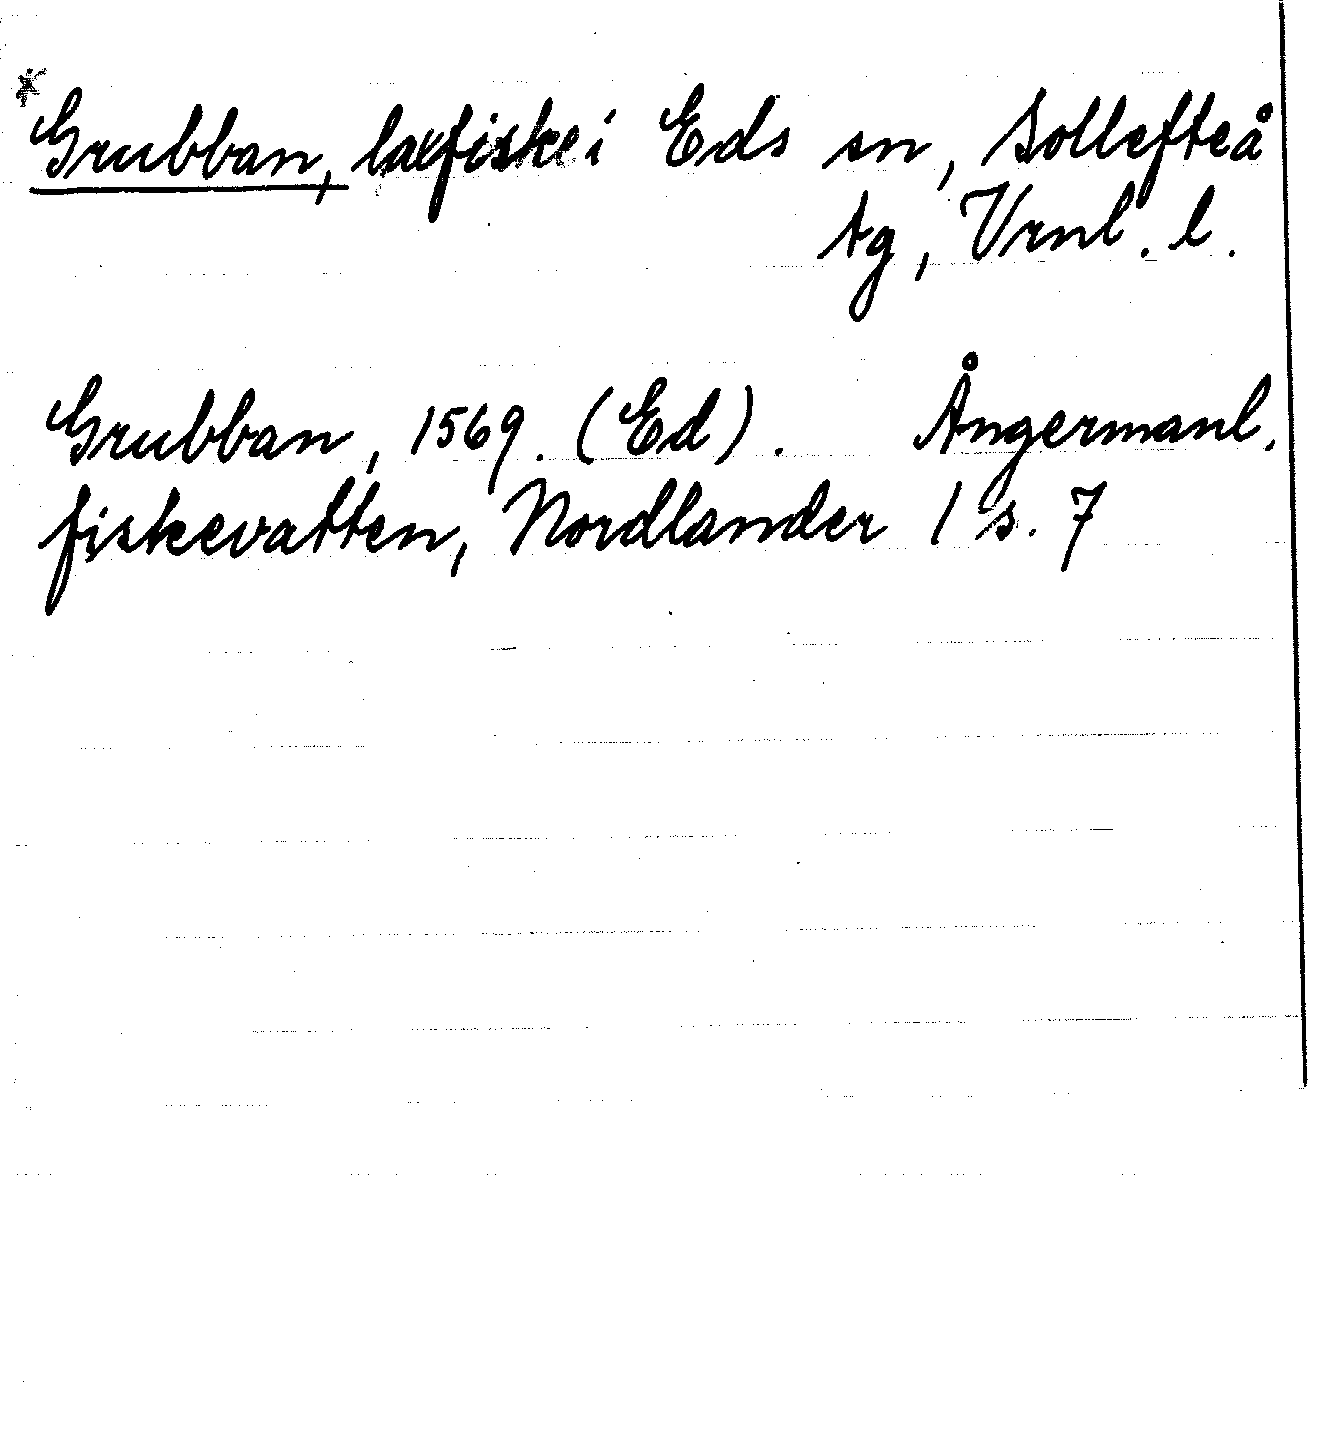 * Grubban, laxfiske i Eds sn, Sollefteå
tg, Vrnl. l.
Grubban, 1569. (Ed). Ångermanl.
fiskevatten, Nordlander 1 s. 7